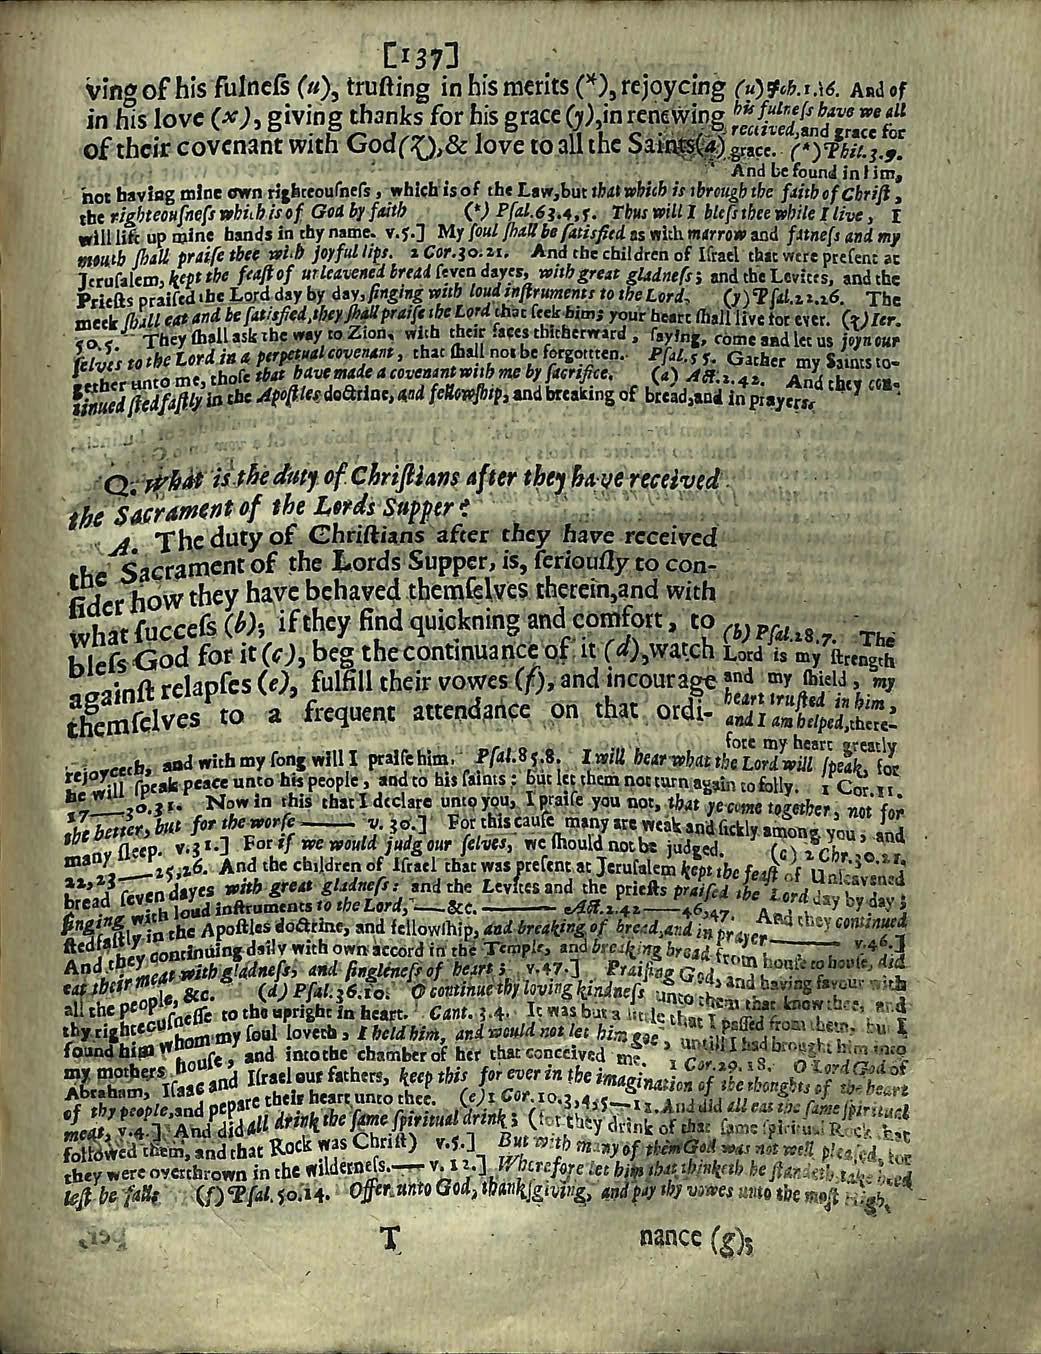 [137]
ving of his fulneſs (u), truſting in his merits (*), rejoycing
in his love (x), giving thanks for his grace (y), in renewing
of their covenant with God (ʒ), & love to all the Saints (a)
(u) Joh. 1.16. And of
his fulneſs have we all
received, and grace for
grace. (*) Phil. 3.9.
And be found in him,
not having mine own righteouſneſs, which is of the Law, but that which is through the faith of Chriſt,
the righteouſneſs which is of God by faith (*) Pſal. 63.4,5. Thus will I bleſs thee while I live, I
will lift up mine hands in thy name. v.5.] My ſoul ſhall be ſatisfied as with marrow and fatneſs and my
mouth ſhall praiſe thee with joyful lips. 2 Cor. 30.21. And the children of Iſrael that were preſent at
Jeruſalem, kept the feaſt of unleavened bread ſeven dayes, with great gladneſs; and the Levites, and the
Prieſts praiſed the Lord day by day, ſinging with loud inſtruments to the Lord, (y) Pſal. 22.26. The
meek ſhall eat and be ſatisfied, they ſhall praiſe the Lord that ſeek him; your heart ſhall live for ever. (ʒ) Ier.
50.5. They ſhall ask the way to Zion, with their faces thitherward, ſaying, come and let us joyn our
ſelves to the Lord in a perpetual covenant, that ſhall not be forgottten. Pſal. 55. Gather my Saints to-
gether unto me, thoſe that have made a covenant with me by ſacrifice. (a) Act. 2.42. And they con-
tinued ſtedfaſtly in the Apoſtles doctrine, and fellowſhip, and breaking of bread, and in prayers.
Q. What is the duty of Chriſtians after they have received
the Sacrament of the Lords Supper?
A. The duty of Chriſtians after they have received
the Sacrament of the Lords Supper, is, ſeriouſly to con-
ſider how they have behaved themſelves therein, and with
what ſucceſs (b); if they find quickning and comfort, to
bleſs God for it (c), beg the continuance of it (d), watch
againſt relapſes (e), fulfill their vowes (f), and incourage
themſelves to a frequent attendance on that ordi-
(b) Pſal. 28.7. The
Lord is my ſtrength
and my ſhield, my
heart truſted in him,
and I am helped, there-
fore my heart greatly
rejoyceth, and with my ſong will I praiſe him. Pſal. 85.8. I will hear what the Lord will ſpeak, for
he will ſpeak peace unto his people, and to his ſaints: but let them not turn again to folly. 1 Cor. 11.
17——30.31. Now in this that I declare unto you, I praiſe you not, that ye come together, not for
the better, but for the worſe —— v. 30.] For this cauſe many are weak and ſickly among you, and
many ſleep. v.31.] For if we would judg our ſelves, we ſhould not be judged. (c) 2 Chr. 30.21.
22,23——25,26. And the children of Iſrael that was preſent at Jeruſalem kept the feaſt of Unleavened
bread ſeven dayes with great gladneſs: and the Levites and the prieſts praiſed the Lord day by day;
ſinging with loud inſtruments to the Lord, —&c. —— Act. 2.42——46,47. And they continued
ſtedfaſtly in the Apoſtles doctrine, and fellowſhip, and breaking of bread, and in prayer —— v.46.]
And they continuing daily with own accord in the Temple, and breaking bread from houſe to houſe, did
eat their meat with gladneſs, and ſingleneſs of heart; v.47.] Praiſing God, and having favour with
all the people, &c. (d) Pſal. 36.10. O continue thy loving kindneſs unto them that know thee, and
thy righteouſneſſe to the upright in heart. Cant. 3.4. It was but a little that I paſſed from them, but I
found him whom my ſoul loveth, I held him, and would not let him goe, untill I had brought him into
my mothers houſe, and into the chamber of her that conceived me. 1 Cor. 29.18. O Lord God of
Abraham, Iſaac and Iſrael our fathers, keep this for ever in the imagination of the thoughts of the heart
of thy people, and pepare their heart unto thee. (e) 1 Cor. 10.3,4,5—12. And did all eat the ſame ſpiritual
meat, v.4.] And did all drink the ſame ſpiritual drink; (for they drink of that ſame ſpiritual Rock that
followed them, and that Rock was Chriſt) v.5.] But with many of them God was not well pleaſed, for
they were overthrown in the wilderneſs.—— v. 12.] Wherefore let him that thinketh he ſtandeth, take heed
leſt he fall; (f) Pſal. 50.14. Offer unto God, thankſgiving, and pay thy vowes unto the moſt High,
T nance (g);